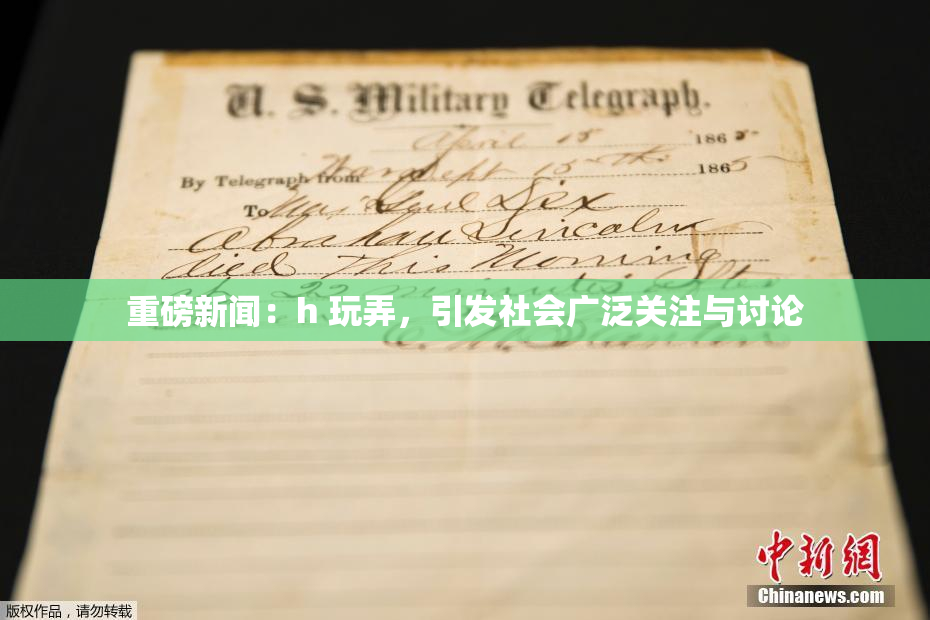 U. S. Military Telegraph.
April 15 1865
By Telegraph from War Dept 15th 1865
To Maj Genl Dix
Abraham Lincoln
died This Morning
at 22 minutes after
重磅新闻：h 玩弄，引发社会广泛关注与讨论
E. M. Stanton
中新网
Chinanews.com
版权作品，请勿转载